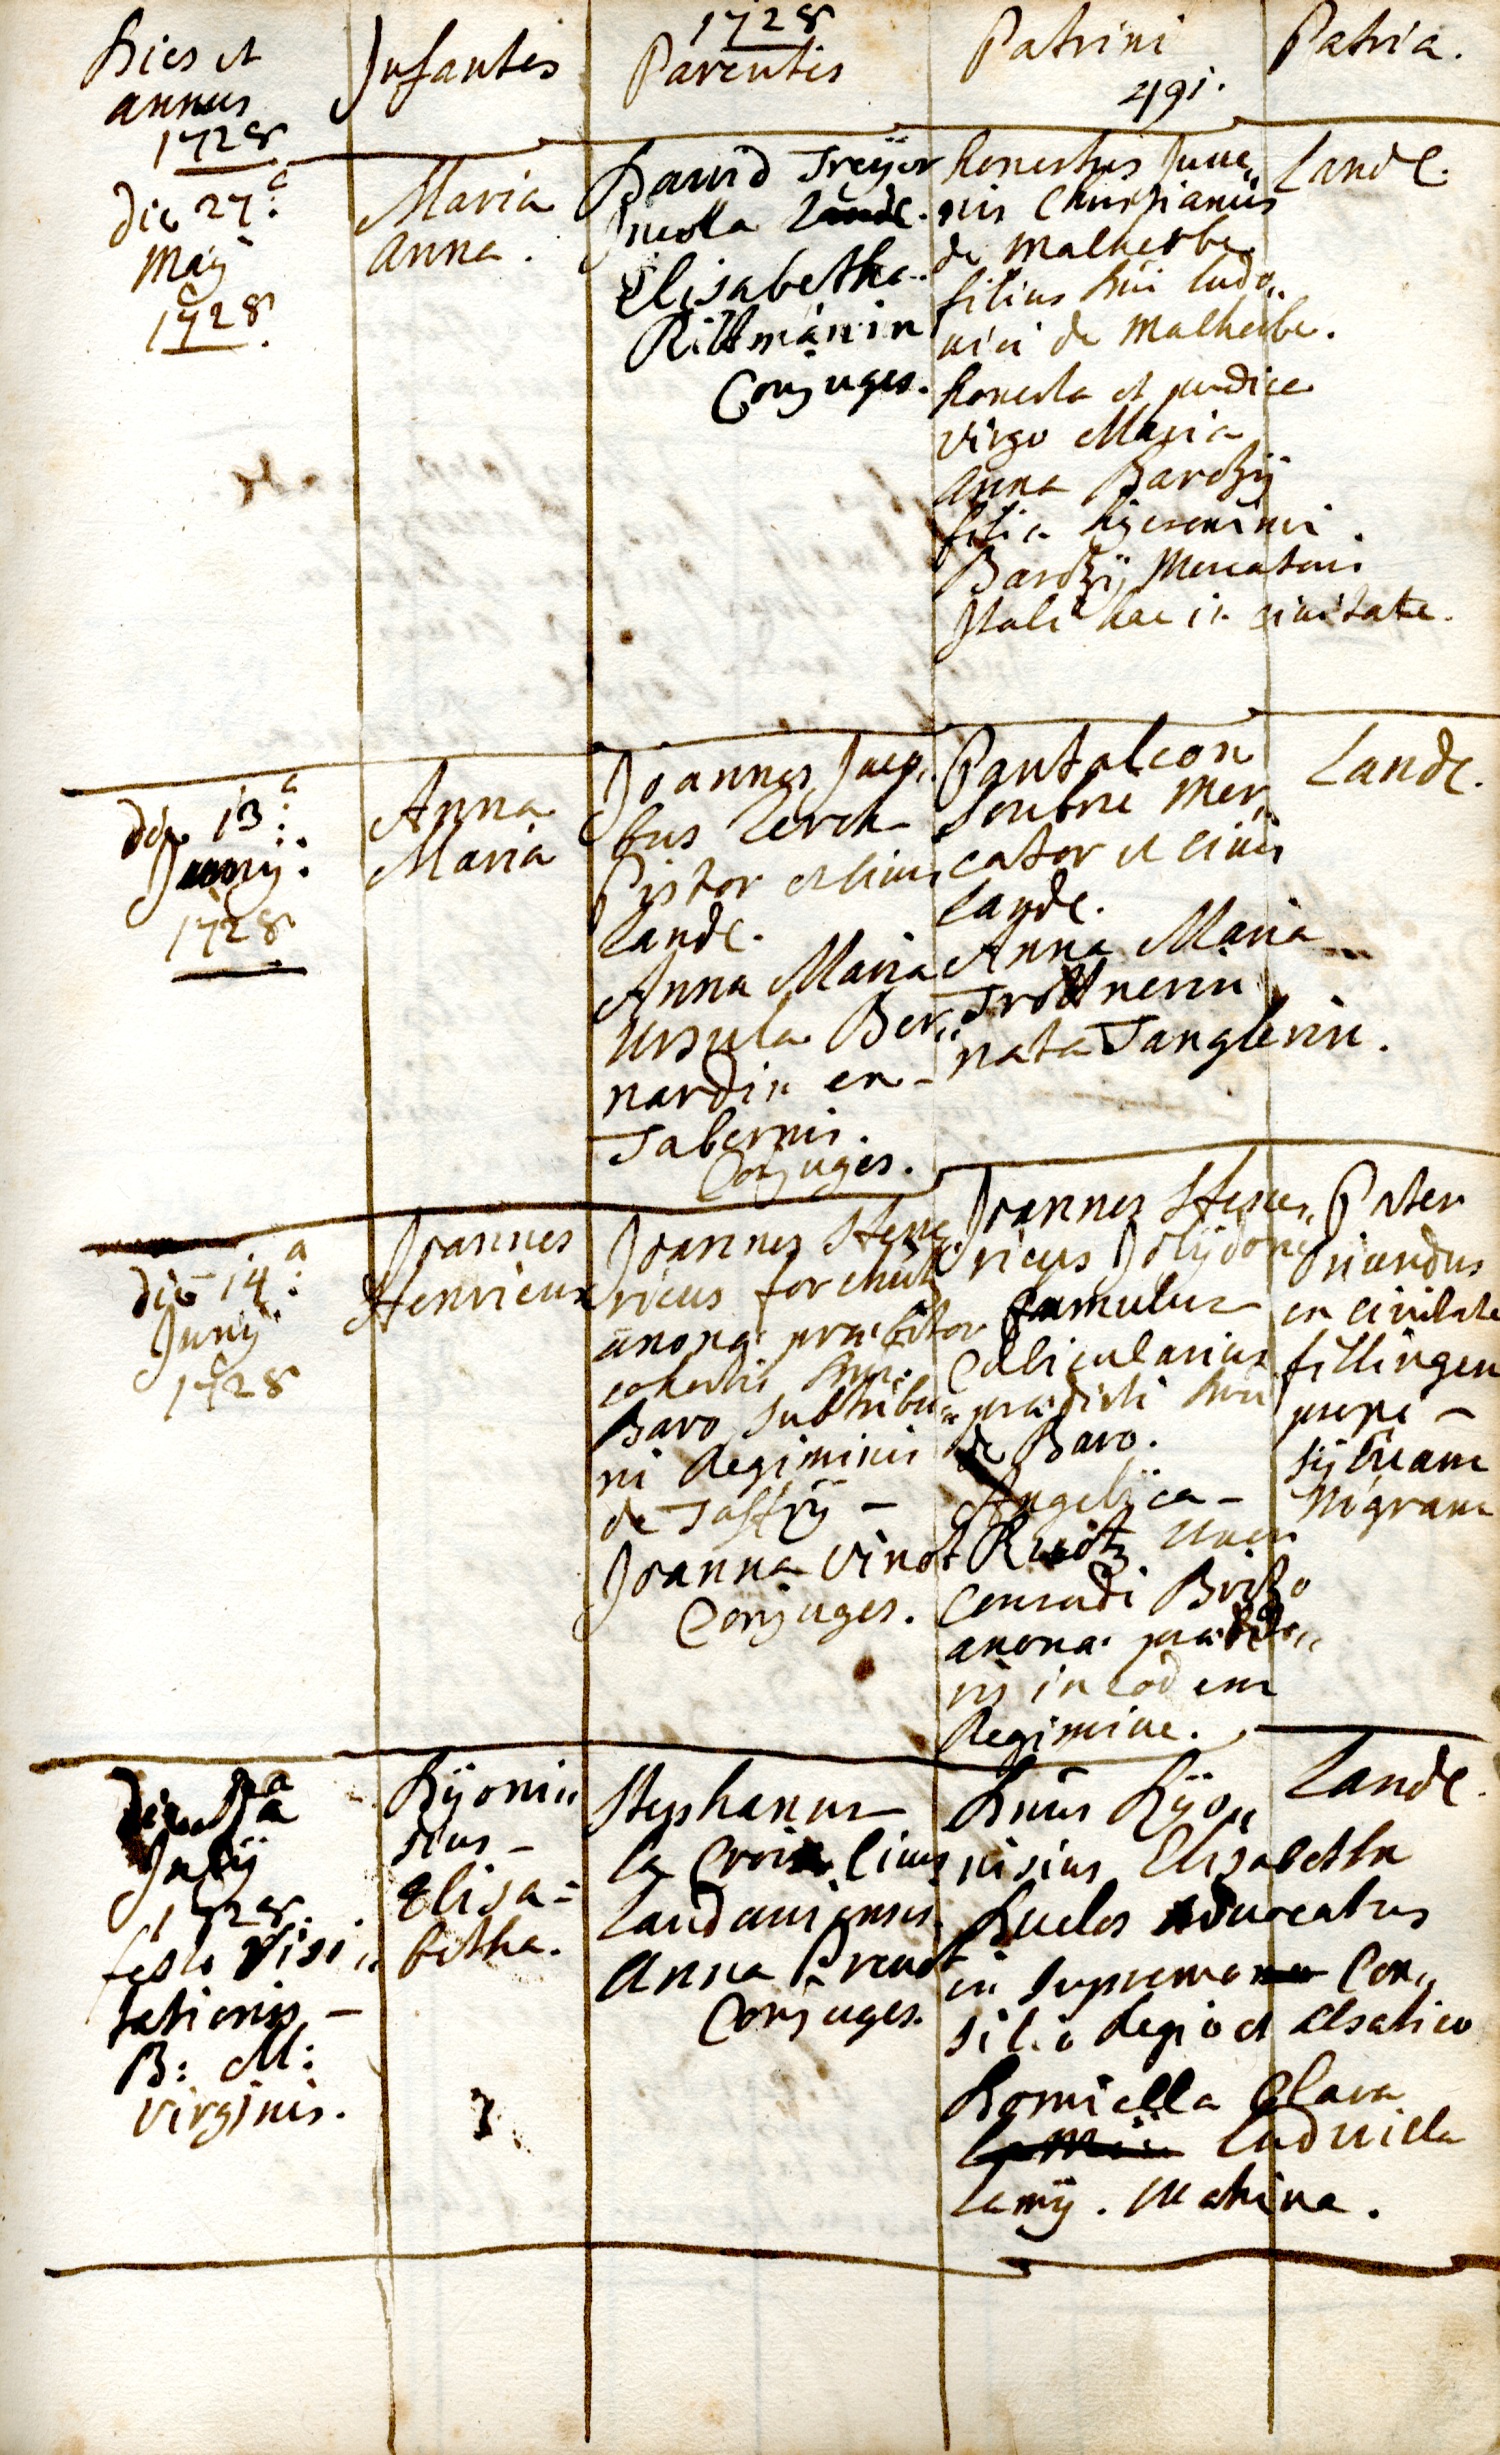 1728
Dies et
annus
1728
Infantes
Parentes
Patrini
491.
Patria.
die 27a:
May
1728.
Maria
Anna.
David Treyer
Incola Landc.
Elisabetha
Rittmänin
Conjuges.
honestus Juve„
nis Christianus
de Malherbe
filius Dni Ludo„
vici de Malherbe.
honesta et pudica
virgo Maria
Anna Barozy
filia Hyeronimi
Barozij Mercatoris
Itali hac in civitate.
Landc.
die 13a:
Junij:
1728
Anna
Maria
Joannes Jaco„
bus Lerch
Pistor et civis
Landc.
Anna Maria
Ursula Ber„
nardin ex
Tabernis.
Conjuges.
Pantaleon
Soubre Mer„
cator et civis
Landc.
Anna Maria
Trottnerin
nata Tanglerin.
Landc.
die 14a:
Junij
1728
Joannes
Henricus
Joannes Hen
ricus for
anonae praebitor
cohortis
Baro subtribu„
ni Regiminis
de
Joanna Vinot
Conjuges.
Joannes Hen„
ricus
famulus
Collicularius
praedicti Dni
de Baro.
Angelica
uxor
Conradi
anonae praebito„
ris in eodem
Regimine.
Pater
oriundus
ex civitate
fillingen
prope
sylvam
Nigram
die 2a
July
1728.
festo Visi„
tationis
B: M:
Virginis.
Dyonis„
sius
Elisa=
betha.
Stephanus
la Croix civis
Landaviensis.
Anna Prevot
Conjuges.
Dnus Dyo„
nisius Elisabetha
Duclos advocatus
in supremo Con„
silio Regio et Alsatico
Domicella Clara
Ludvicla
Lamy. Matrina.
Landc.